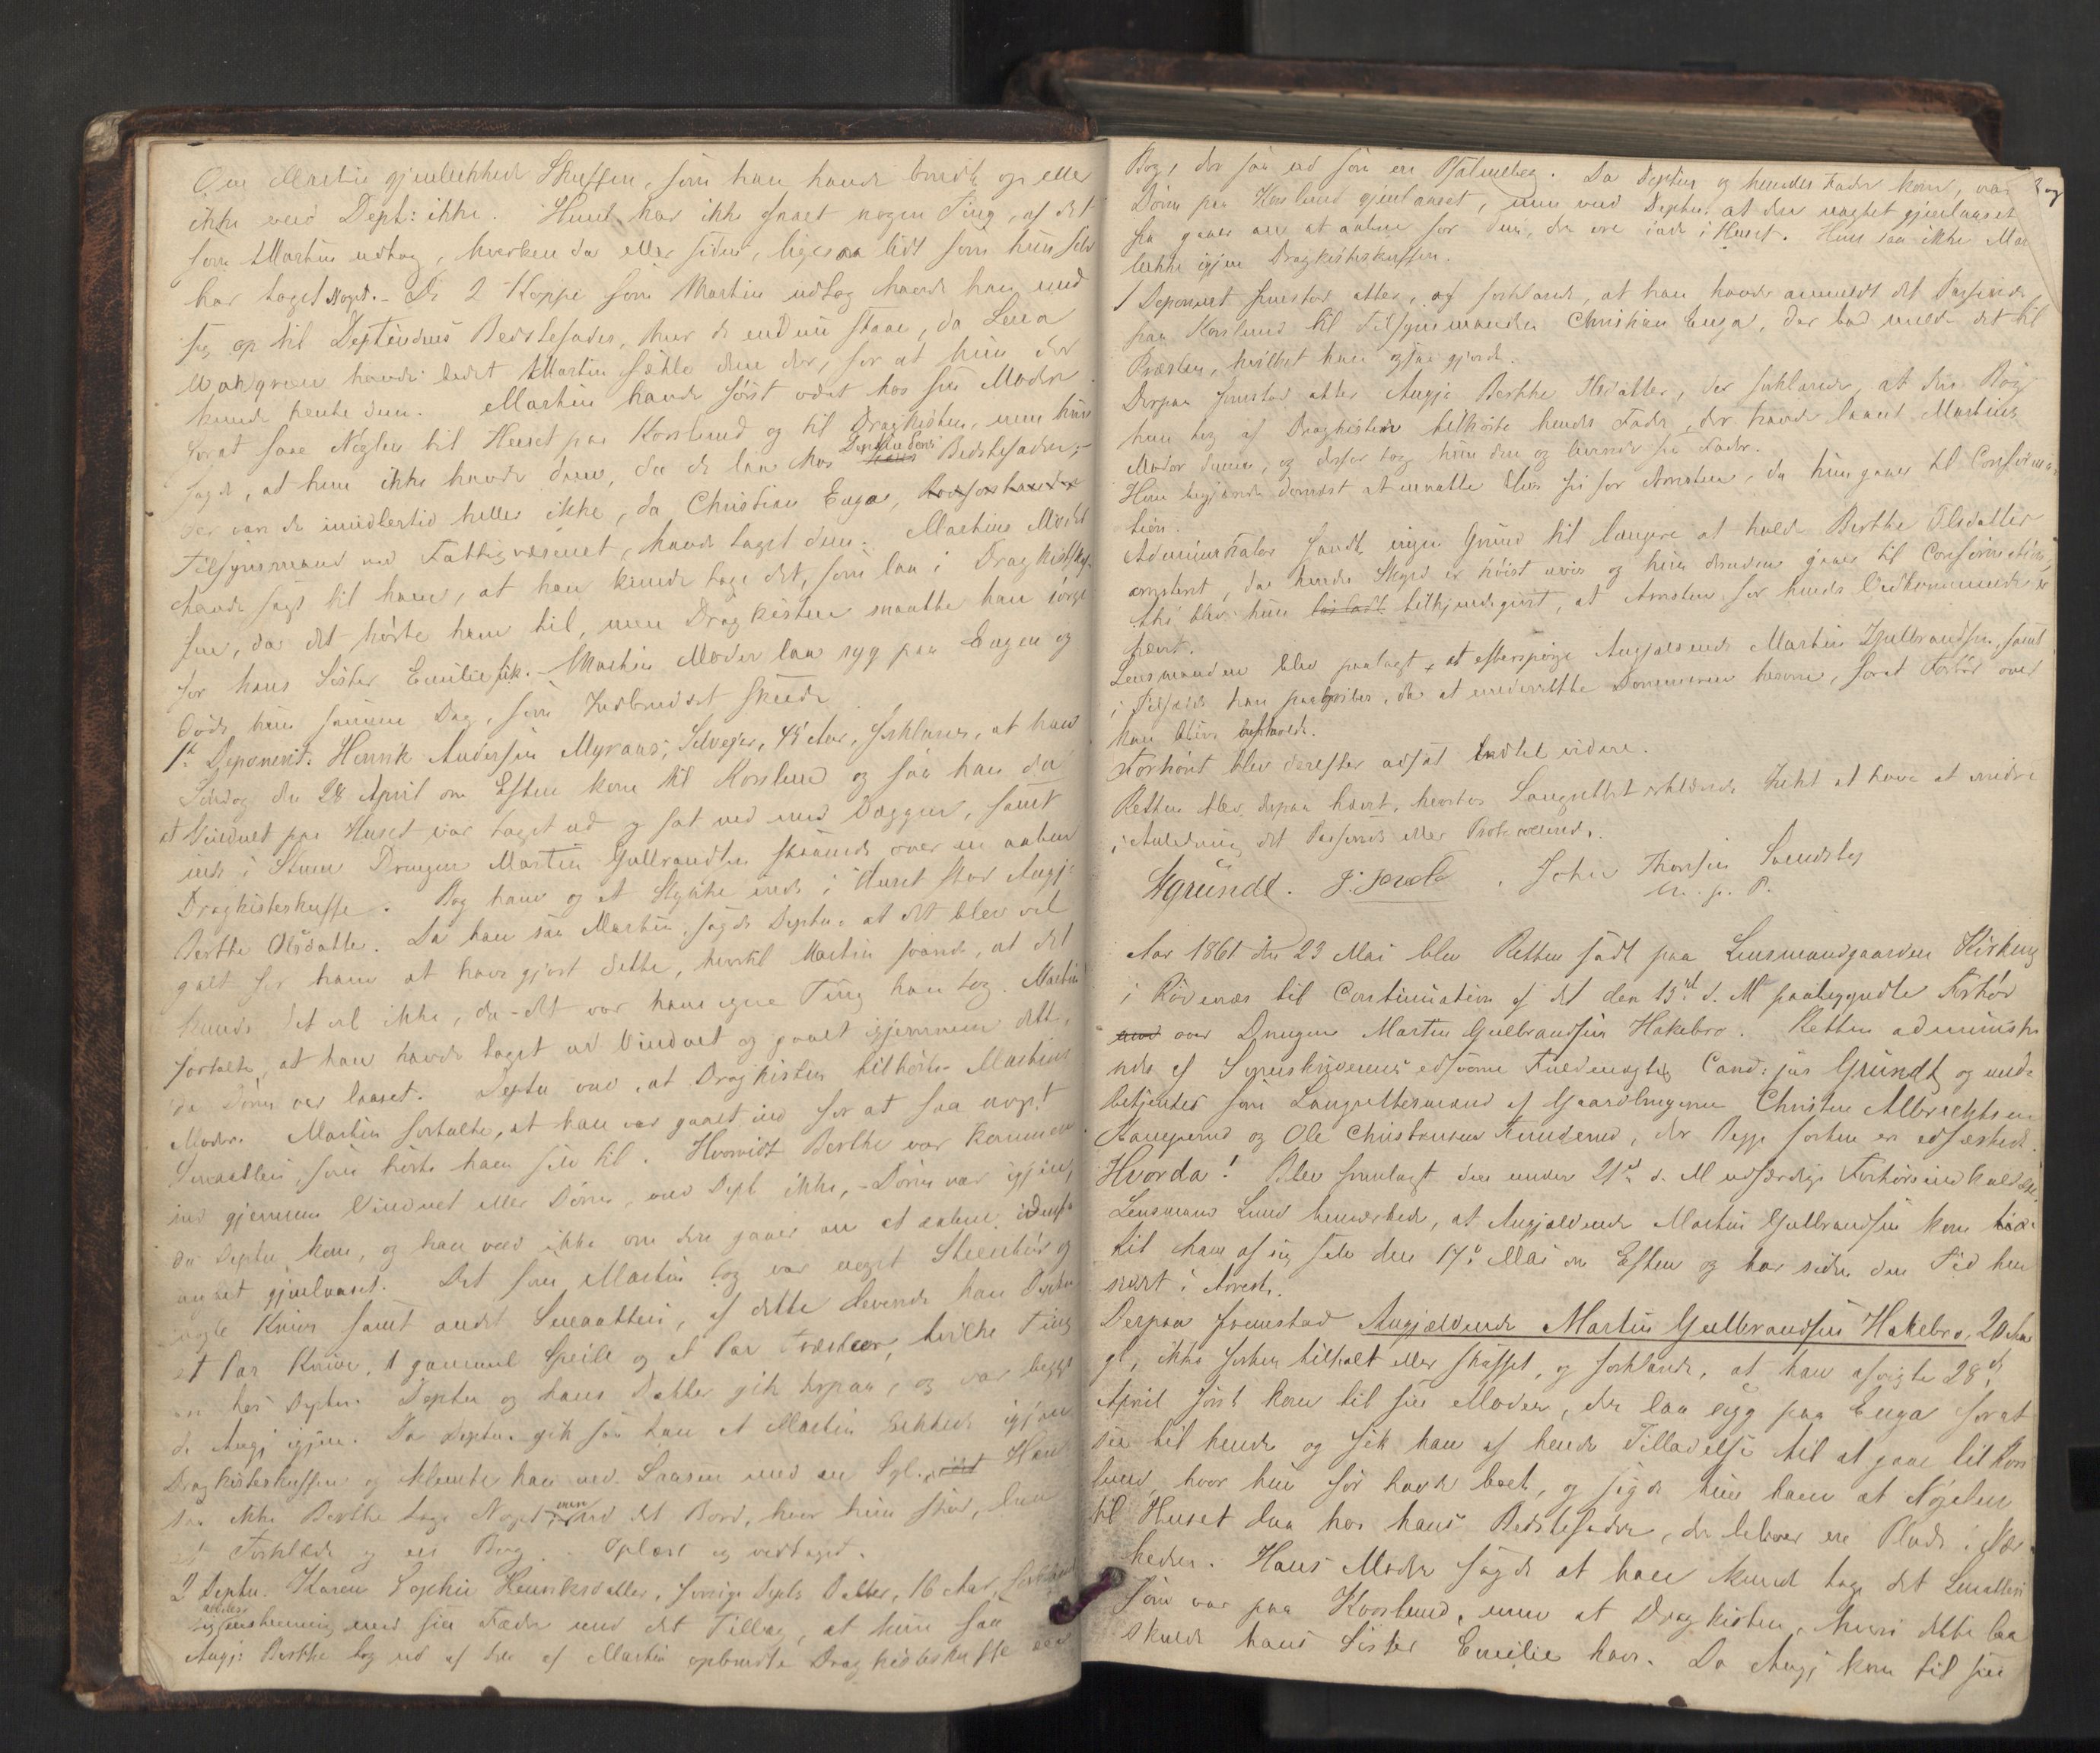 Om Martin gjenlukkede Skuffen, som han havde brudt op eller
ikke veed Dept: ikke. Hun har ikke faaet nogen Ting, af det
som Martin udtog, hverken da eller siden, ligesaa lidt som hun selv
har taget Noget. – De 2 Koppe som Martin udtog havde han med
sig op til Deptindens Bedstefader, hvor de endnu staae, da Lena
havde bedet Martin sætte dem der, for at hun der
kunde hente dem. Martin havde først været hos sin Moder
forat faae Nøglen til Huset paa Korslund og til Dragkisten, men hun
sagde, at hun ikke havde dem, da de laa hos Deptindens Bedstefader;
der var de imidlertid heller ikke, da Christian Enga,
Tilsynsmand ved Fattigvæsenet, havde taget dem. Martins Moder
havde sagt til ham, at han kunde tage det, som laa i Dragkisteskuf-
fen, da det hørte ham til, men Dragkisten maatte han sørge
for hans Søster Emilie fik. – Martins Moder laa syg paa Engen og
døde hun samme Dag, som Indbruddet skede.
1ste Deponent: Henrik Andersen Myraas, Selveier, 45 Aar, forklarer, at han
Søndag den 28 April om Eften kom til Korslund og saa han da
at Vinduet paa Huset var taget ud og sat ned med Væggen, samt
inde i Stuen Drengen Martin Gulbrandsen staaende over en aaben
Dragkisteskuffe. Bag ham og et Stykke inde i Huset stod Angj:
Berthe Olsdatter. Da han saa Martin, sagde Deptn. at det blev vel
galt for ham at have gjort dette, hvortil Martin svarede, at det
kunde det vel ikke, da det var hans egne Ting han tog. Martin
fortalte, at han havde taget ud Vinduet og gaaet igjennem dette,
da Døren var laaset. Deptn veed, at Dragkisten tilhørte Martins
Moder. Martin fortalte, at han var gaaet ind for at faa noget
Smaatteri, som hørte ham selv til. Hvorvidt Berthe var kommen
ind gjennem Vinduet eller Døren, veed Dept ikke, – Døren var igjen,
da Deptn kom, og han veed ikke om den gaaer an at aabne indenfra
uagtet gjenlaaset. Det som Martin tog var noget
nogle Knive samt andet Smaatteri, af dette leverede han Deptn
et Par Knive, 1 gammel Speile og et Par Træskeer, hvilke Ting
er hos Deptn. Deptn og hans Datter gik derpaa, og var begge
de Angj igjen. Da Deptn. gik saa han at Martin lukkede igjen
Dragkisteskuffen og klemte han ved Laasen med en Syl. Han
saa ikke Berthe tage Noget, men ved det Bord, hvor hun stod, laa
et Forklæde og en Bog. – Oplæst og vedtaget.
2 Deptn. Karen Sophie Henriksdatter, forrige Depts Datter, 16 Aar, forklarede
aldeles overensstemmig med sin Fader med det Tillæg, at hun saa
Angj: Berthe tog ud af den af Martin opbrudte Dragkisteskuffe een
Bog, der saa ud som en Psalmebog. Da Deptn og hendes Fader kom, var
Døren paa Korslund gjenlaaset, men veed Deptn. at den uagtet gjenlaaset
saa gaaer an at aabne for dem, der ere inde i Huset. Hun saa ikke Mar
lukke igjen Dragkisteskuffen.
1 Deponent fremstod atter, og forklarede, at han havde anmeldt det Passerede
paa Korslund til Tilsynsmanden Christian Enga, der bad melde det til
Præsten, hvilket han ogsaa gjorde.
Derpaa fremstod atter Angj: Berthe Olsdatter, der forklarede, at den Bog
hun tog af Dragkisten tilhørte hendes Fader, der havde laant Martins
Moder denne, og derfor tog hun den og leverede sin Fader.
Hun begjærede dernæst at maatte blive fri for Arresten, da hun gaaer til Confirma-
tion.
Administrator fandt ingen Grund til længere at holde Berthe Olsdatter
arresteret, da hendes Skyld er høist uvis og hun desuden gaaer til Confirmation,
thi blev hun tilkjendegivet, at Arresten for hendes Vedkommende er
hævet.
Lensmanden blev paalagt, at efterspørge Angjældende Martin Gulbrandsen, samt
i Tilfælde han paagribes, da at underrette Dommeren herom, forat Forhør over
ham kan blive optaget.
Forhøret blev derefter udsat indtil videre.
Retten blev derpaa hævet, hvorhos Laugrettet erklærede Intet at have at erindre
i Anledning det Passerede eller Protocollerede.
Grundt. John Thorsen Svendsby
m. p. P.
Aar 1861 den 23 Mai blev Retten sadt paa Lensmandgaarden Kirkeng
i Rødenæs til Continuation af det den 13de d. M paabegyndte Forhør
over Drengen Martin Gulbrandsen Hakebro. Retten administre-
redes af Sorenskriverens edsvorne Fuldmægtig Cand: jur Grundt og med-
betjentes som Laugrettesmænd af Gaardbrugerne Christen Albrechtsen
Kamperud og Ole Christensen, der Begge forhen er edfæstede.
Hvorda! Blev fremlagt den under 21de d. M udfærdige Forhørsindkaldelse.
Lensmand Lund bemærkede, at Angjældende Martin Gulbrandsen kom
til ham af sig selv den 17de Mai om Eften og har siden den Tid hen-
siddet i Arrest.
Derpaa fremstod Angjældende Martin Gulbrandsen Hakebro, 20 Aar
gl, ikke forhen tiltalt eller straffet, og forklarede, at han afvigte 28de
April først kom til sin Moder, der laa syg paa Enga forat
see til hende og fik han af hende Tilladelse til at gaae til Kors-
lund, hvor hun før havde boet, og sagde hun ham at Nøglen
til Huset laa hos hans Bedstefader, der beboer en Plads i Nær-
heden. Hans Moder sagde at han kunde tage det Smaatteri
som var paa Korslund, men at Dragkisten, hvori dette laa
skulde hans Søster Emilie have. Da Angj kom til sin